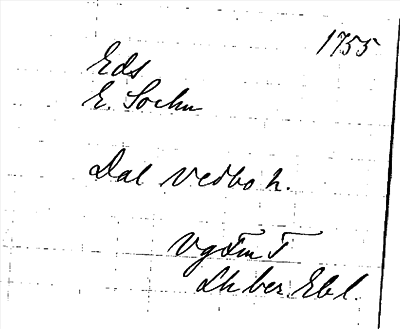 1755
Eds
E. Sockn
Dal Vedbo h.
Vg Fm T
Lh ber. Ebl.